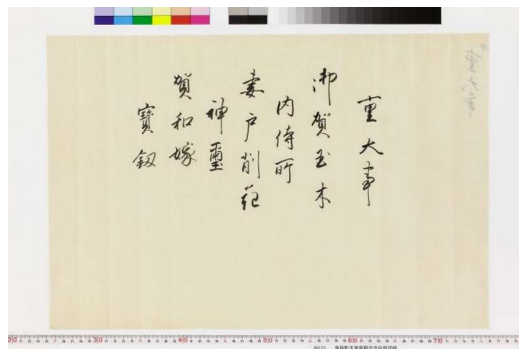 重大事
御賀玉木
内侍所
妻戸削花
神璽
賀和嫁
寳剱